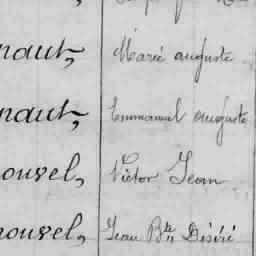 naut, Marie auguste
naut, Emmanuel auguste
ouvel, Victor Jean
nouvel, Jean Bte Désiré